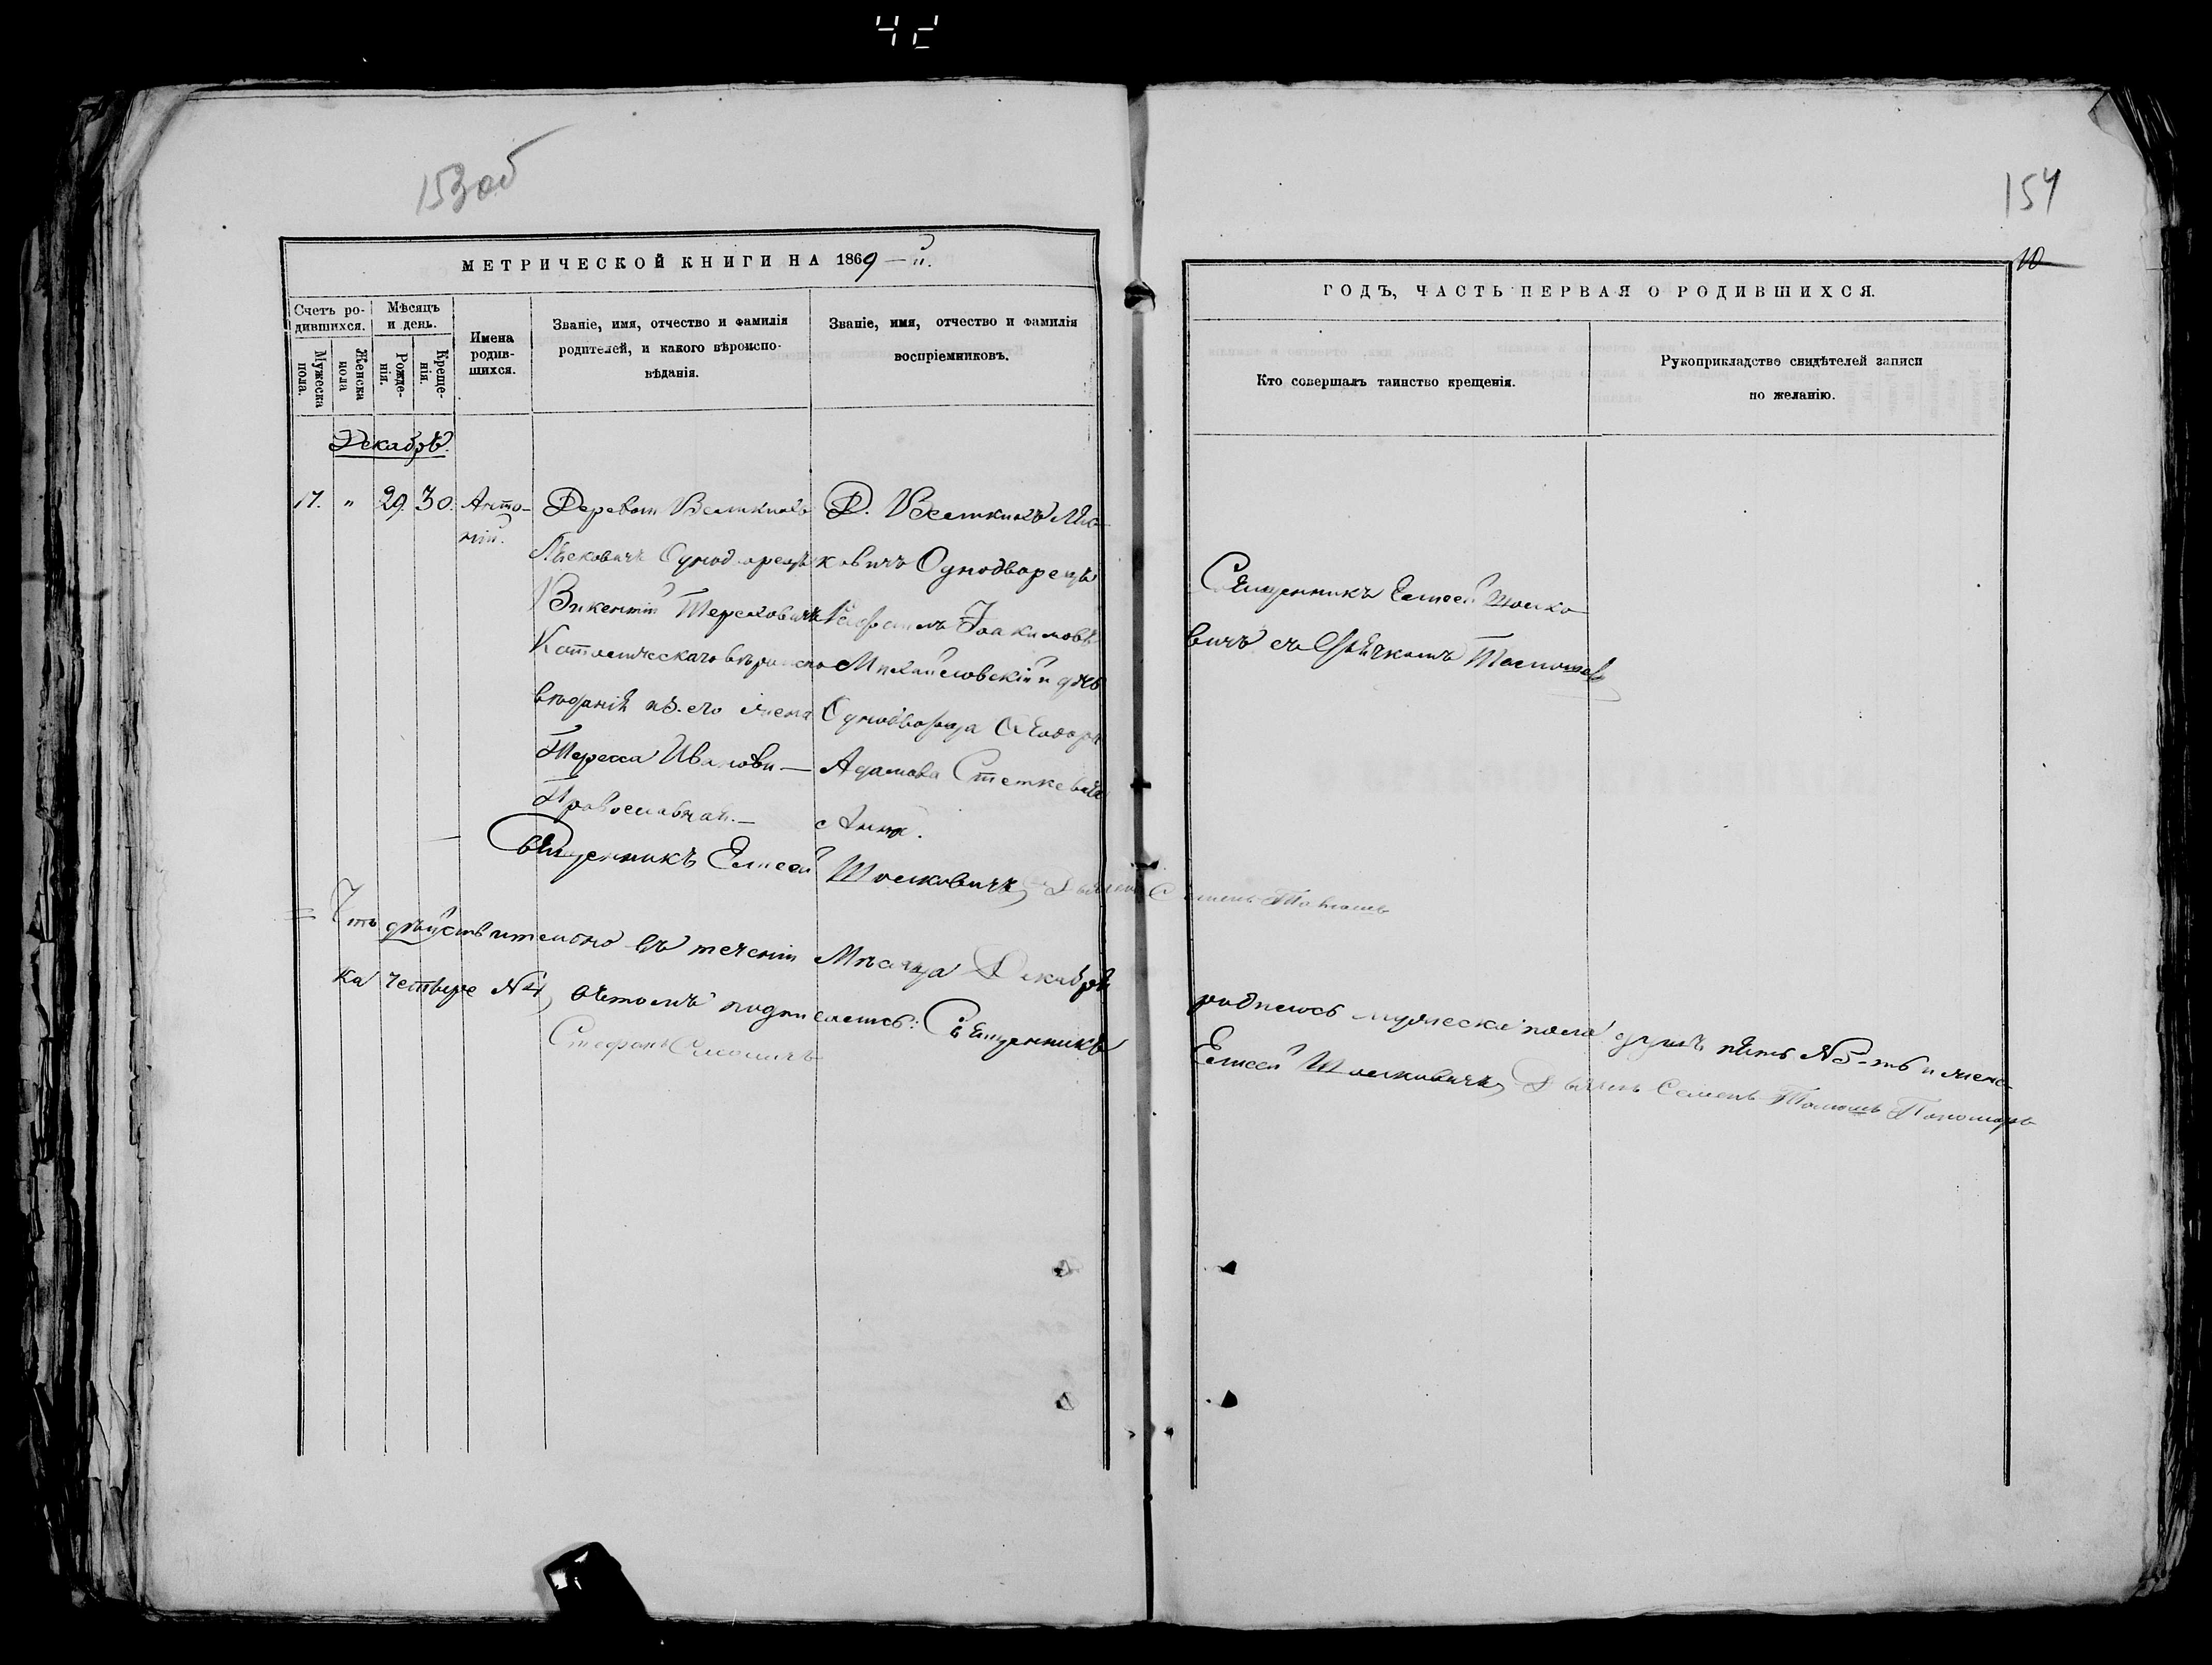 42
153об
154
10
МЕТРИЧЕСКОЙ КНИГИ НА 1869 – й.
ГОДЪ, ЧАСТЬ ПЕРВАЯ О РОДИВШИХСЯ.
Счетъ ро-
дившихся.
Мѣсяцъ
и день.
Мужеска
пола.
Женска
пола
Рожде-
нія.
Креще-
нія.
Имена
родив-
шихся.
Званіе, имя, отчество и фамилія
родителей, и какого вѣроиспо-
вѣданія.
Званіе, имя, отчество и фамилія
воспріемниковъ.
Кто совершалъ таинство крещенія.
Рукоприкладство свидѣтелей записи
по желанію.
Декабрь.
17. " 29. 30.
Анто-
ній.
Деревни Великихъ
Лѣсковичъ Однодворецъ
Викентій Тереховичъ
Католическаго вѣроиспо
вѣданія из. его жена
Тереса Иванова —
Православная. —
Д. Великихъ Лѣс-
ковичъ Однодворецъ
Іоакимовъ
Михайловскій и дчь
Однодворца
Адамова Стеткевича
Анна.
Священникъ Елисей Шолко-
вичъ съ
Священникъ Елисей Шолковичъ, Дьячекъ Семенъ
Что дѣйствительно въ теченіи Мѣсяца Декабря
родилось мужеска пола душъ пять №5-ть и женс-
ка четыре №4, въ томъ подписались: Священникъ
Елисей Шолковичъ, Дьячекъ Семенъ Пономарь
Стефанъ